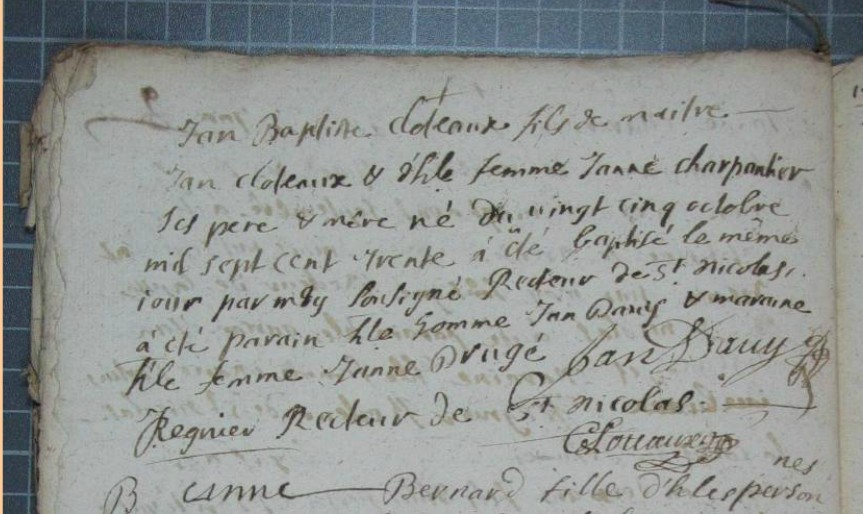 Jan Baptiste Cloteaux fils de maitre
Jan Cloteaux & d'hle femme Janne Charpantier
ses pere & mére né du vingt cinq octobre
mil sept cent trente á été baptisé le même
iour par moy sousigné Recteur de St. Nicolas,
a été parain hle homme Jan Davy & maraine
h'le femme Janne Drugé Jan Davy
Regnier Recteur de St. Nicolas.
Clouaux
nes
B anne Bernard fille d'hles person